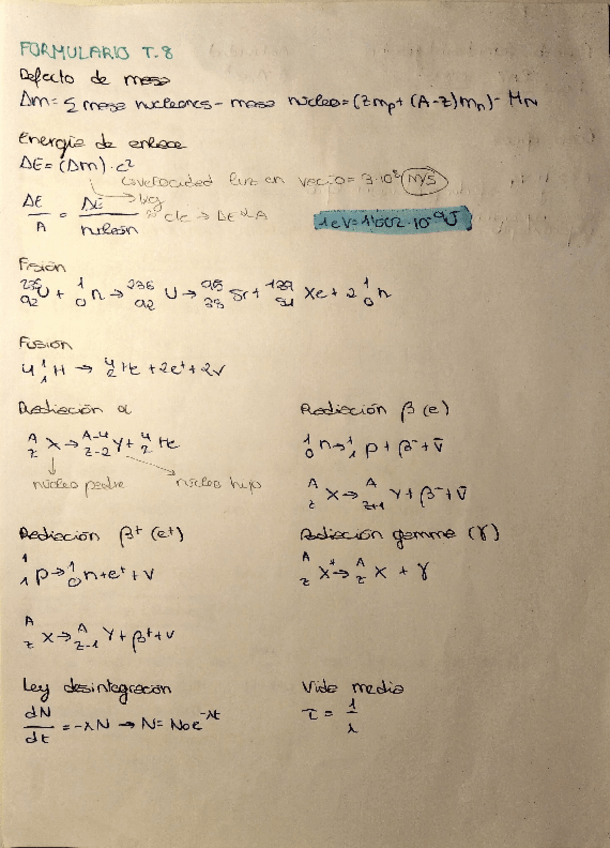 FORMULARIO T.8
Defecto de masa
Δm = Σ masa nucleones - masa núcleo = (Zmp + (A-Z)mn) - MN
Energía de enlace
ΔE = (Δm)·c²
velocidad luz en vacío = 3·10⁸ (m/s)
kg
ΔE/A = ΔE/nucleón cte → ΔE α A
1eV = 1'602·10⁻¹⁹J
Fisión
²³⁵₉₂U + ¹₀n → ²³⁶₉₂U → ⁹⁵₃₈Sr + ¹³⁹₅₄Xe + 2 ¹₀n
Fusión
4 ¹₁H → ⁴₂He + 2e⁺ + 2ν
Radiación α
ᴬ_Z X → ᴬ⁻⁴_Z₋₂ Y + ⁴₂He
núcleo padre núcleo hijo
Radiación β (e)
¹₀n → ¹₁p + β⁻ + ν̄
ᴬ_Z X → ᴬ_Z₊₁ Y + β⁻ + ν̄
Radiación β⁺ (e⁺)
¹₁p → ¹₀n + e⁺ + ν
ᴬ_Z X → ᴬ_Z₋₁ Y + β⁺ + ν
Radiación gamma (γ)
ᴬ_Z X* → ᴬ_Z X + γ
Ley desintegración
dN/dt = -λN → N = N₀e^-λt
Vida media
τ = 1/λ